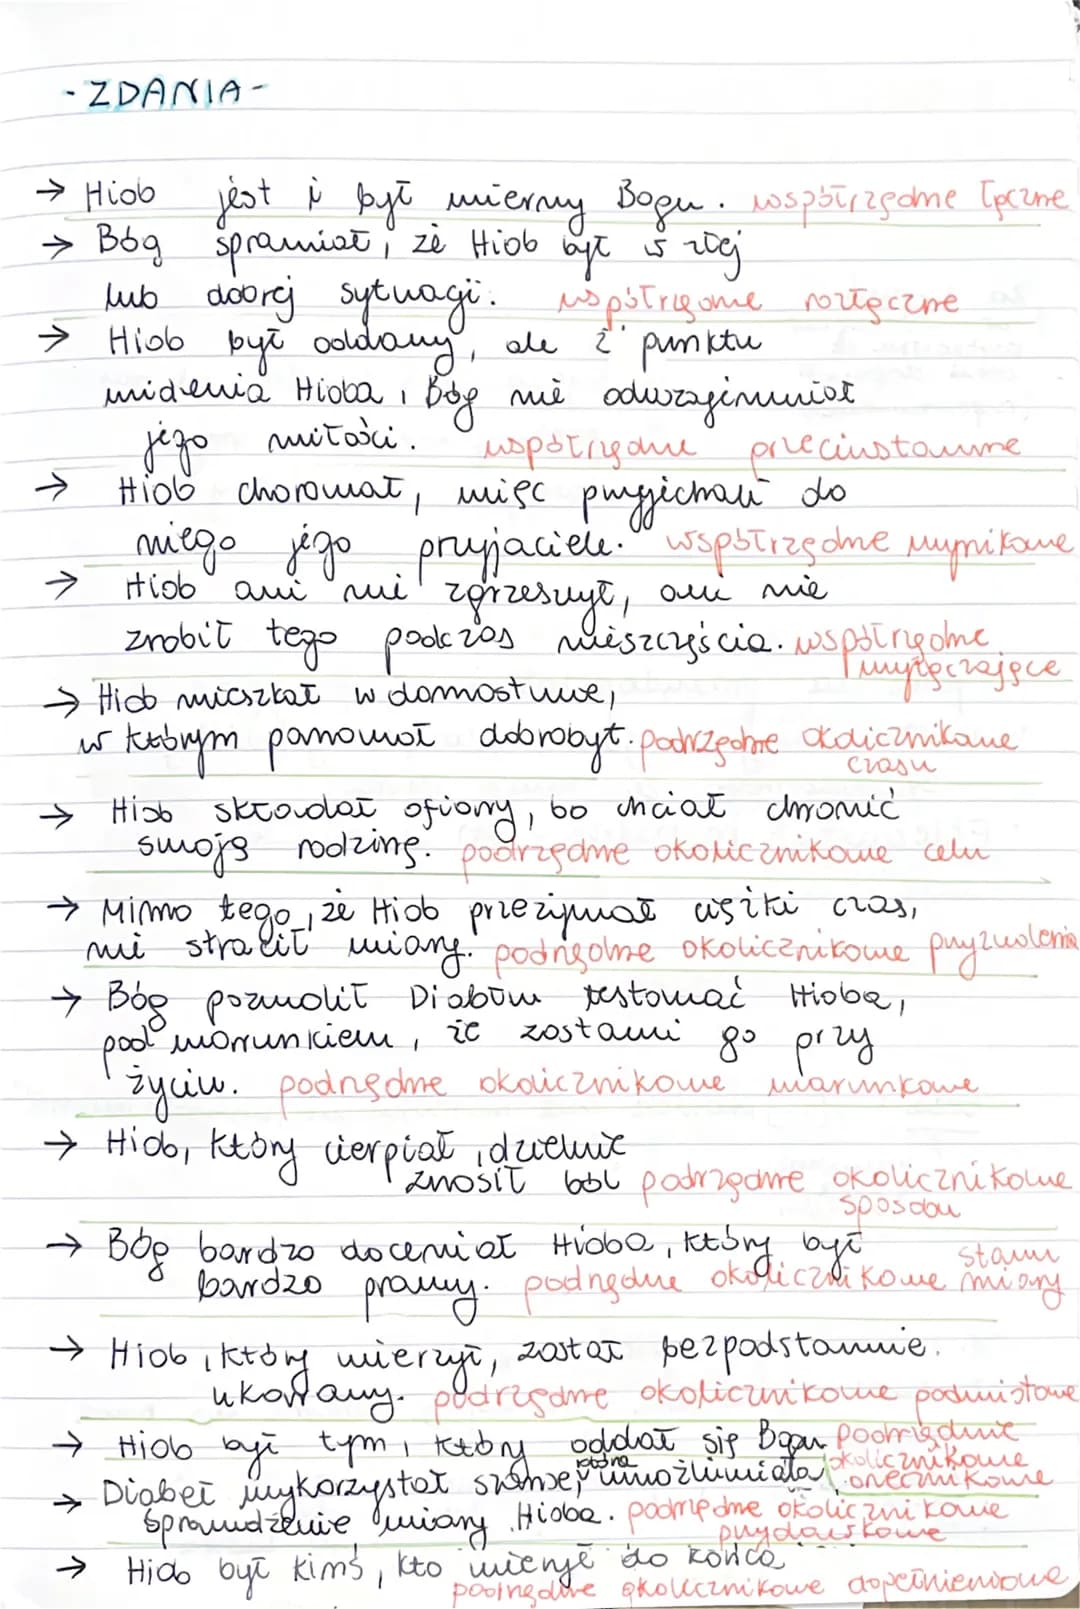 - ZDANIA -
→ Hiob jest i był wierny Bogu. współrzędne łączne
→ Bóg sprawiał, że Hiob był w złej
lub dobrej sytuacji. współrzędne rozłączne
→ Hiob był oddany, ale z punktu
widzenia Hioba, Bóg nie odwzajemniał
jego miłości. współrzędne przeciwstawne
→ Hiob chorował, więc przyjechali do
niego jego przyjaciele. współrzędne wynikowe
→ Hiob ani nie zgrzeszył, ani nie
zrobił tego podczas nieszczęścia. współrzędne
wyłączające
→ Hiob mieszkał w domostwie,
w którym panował dobrobyt. podrzędne okolicznikowe
czasu
→ Hiob składał ofiary, bo chciał chronić
swoją rodzinę. podrzędne okolicznikowe celu
→ Mimo tego, że Hiob przeżywał ciężki czas,
nie stracił wiary. podrzędne okolicznikowe przyzwolenia
→ Bóg pozwolił Diabłu testować Hioba,
pod warunkiem, że zostawi go przy
życiu. podrzędne okolicznikowe warunkowe
→ Hiob, który cierpiał, dzielnie
znosił ból podrzędne okolicznikowe
sposobu
→ Bóg bardzo doceniał Hioba, który był
bardzo prawy. podrzędne okolicznikowe stanu miary
→ Hiob, który wierzył, został bezpodstawnie.
ukarany. podrzędne okolicznikowe podmiotowe
→ Hiob był tym, który oddał się Bogu podrzędnie
okolicznikowe
orzecznikowe
→ Diabeł wykorzystał szansę, która umożliwiała
sprawdzenie wiary Hioba. podrzędne okolicznikowe
przydawkowe
→ Hiob był kimś, kto wierzył do końca
podrzędne okolicznikowe dopełnieniowe